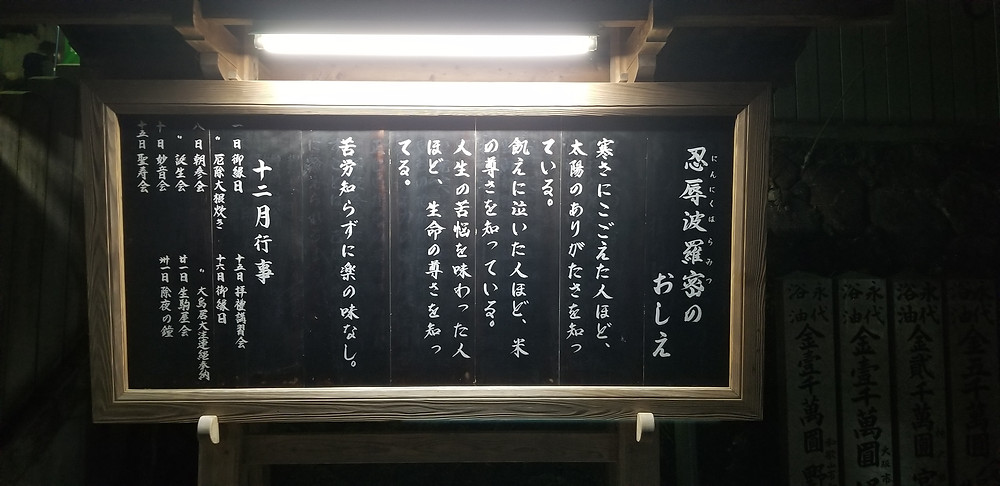 忍辱波羅密の
にんにくはらみつ
おしえ
寒さにこごえた人ほど、
太陽のありがたさを知っ
ている。
飢えに泣いた人ほど、米
の尊さを知っている。
人生の苦悩を味わった人
ほど、生命の尊さを知っ
てる。
苦労知らずに楽の味なし。
十二月行事
一日御縁日
〃厄除大根炊き
八日朝参会
〃誕生会
十日妙音会
十五日聖寿会
十五日拝禮講習会
十六日御縁日
〃大鳥居大注連縄奉納
廿一日生駒屋会
卅一日除夜の鐘
永代
浴油
金五千萬圓
永代
浴油
金貳千萬圓
永代
浴油
金壹千萬圓
大阪市
永代
浴油
金壹千萬圓